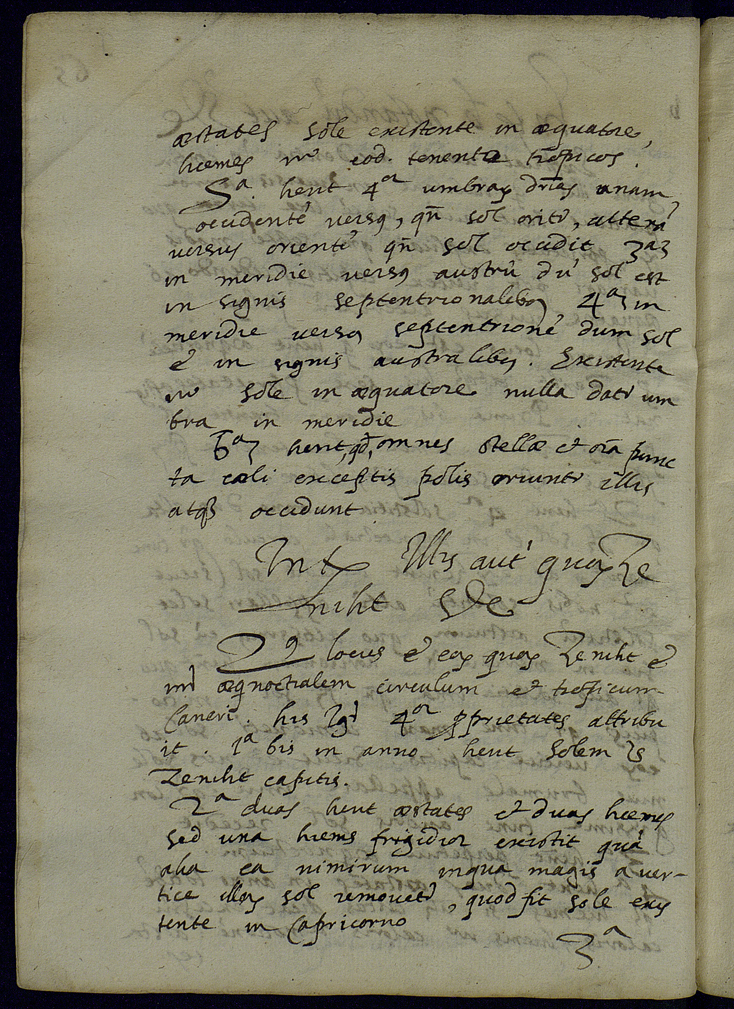 æstates sole existente in æquatore,
hiemes vº eod. tenente tropicos.
5ª. hent 4ᵒʳ umbras dr̃es unam
occidentē versꝰ, qñ sol oritr, alterā
versus orientē qñ sol occidit 3ã
in meridie versꝰ austrū dū sol est
in signis septentrionalibꝰ 4ã in
meridie versꝰ septentrionē dum sol
ē in signis australibꝰ. Existente
vº sole in æquatore nulla datr um
bra in meridie
6ã hent, qđ, omnes stellæ et oĩa punc
ta cæli exceptis polis oriuntr illis
atqꝫ occidunt
In tx Illis aut quoꝝ Ze
niht &c
2ꝰ locus ē eoꝝ quoꝝ Zeniht ē
inr æqnoctialem circulum et tropicum
Cancri. his 4ᵒʳ ꝓprietates attribu
it. 1ª bis in anno hent solem
Zeniht capitis.
2ª duas hent æstates et duas hiemes
sed una hiems frigidior existit quā
alia ea nimirum in qua magis a ver-
tice illoꝝ sol removetr, quod fit sole exis
tente in Capricorno
3ª